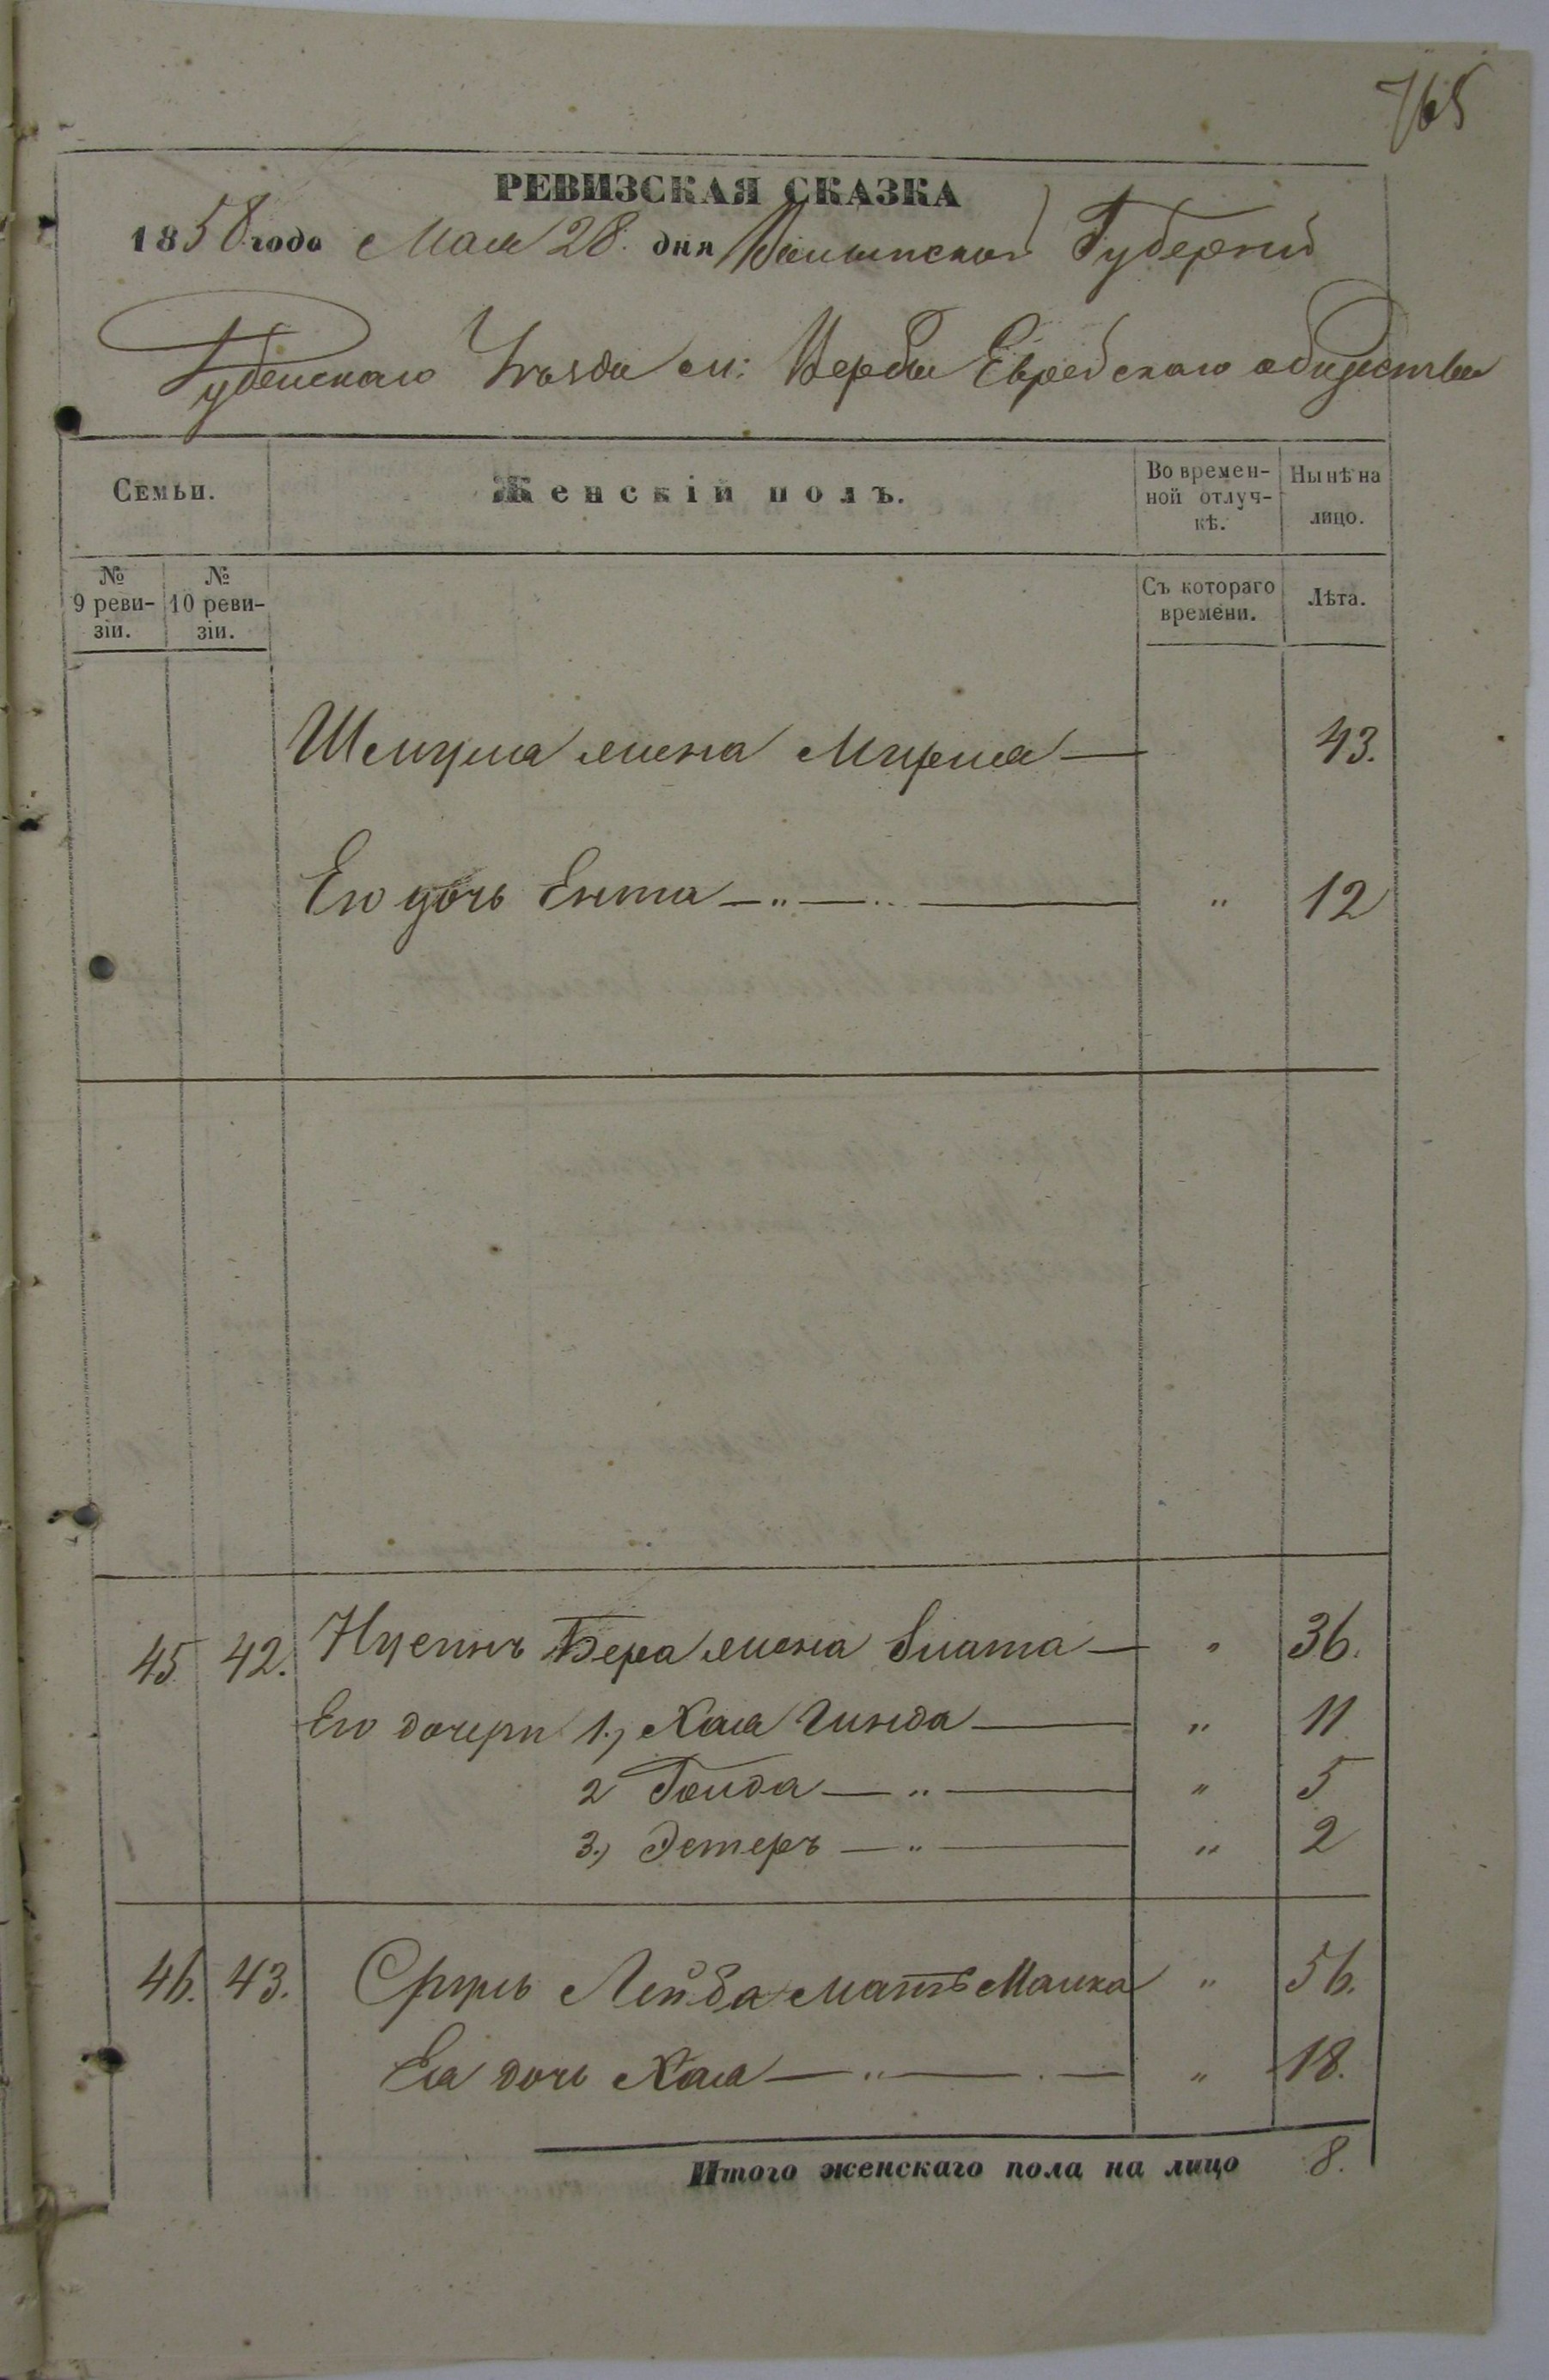 765
РЕВИЗСКАЯ СКАЗКА
1858 года Мая 28. дня Волынской Губернии
Дубенскаго Уѣзда м: Верба Еврейскаго общества
Семьи.
Женскій полъ.
Во времен-
ной отлуч-
кѣ.
Нынѣ на
лицо.
№
9 реви-
зіи.
№
10 реви-
зіи.
Съ котораго
времени.
Лѣта.
Шмуля жена Мирля — 43.
Его дочь Ента — " — " — " 12
45 42. Нусинъ Бера жена Злата — " 36.
Его дочери 1.) Хая Гинда — " 11
2 Голда — " — " 5
3.) Эстеръ — " — " 2
46. 43. Сруль Лейба мать Малка " 56.
Ея дочь Хая — " — . — " 18.
Итого женскаго пола на лицо 8.